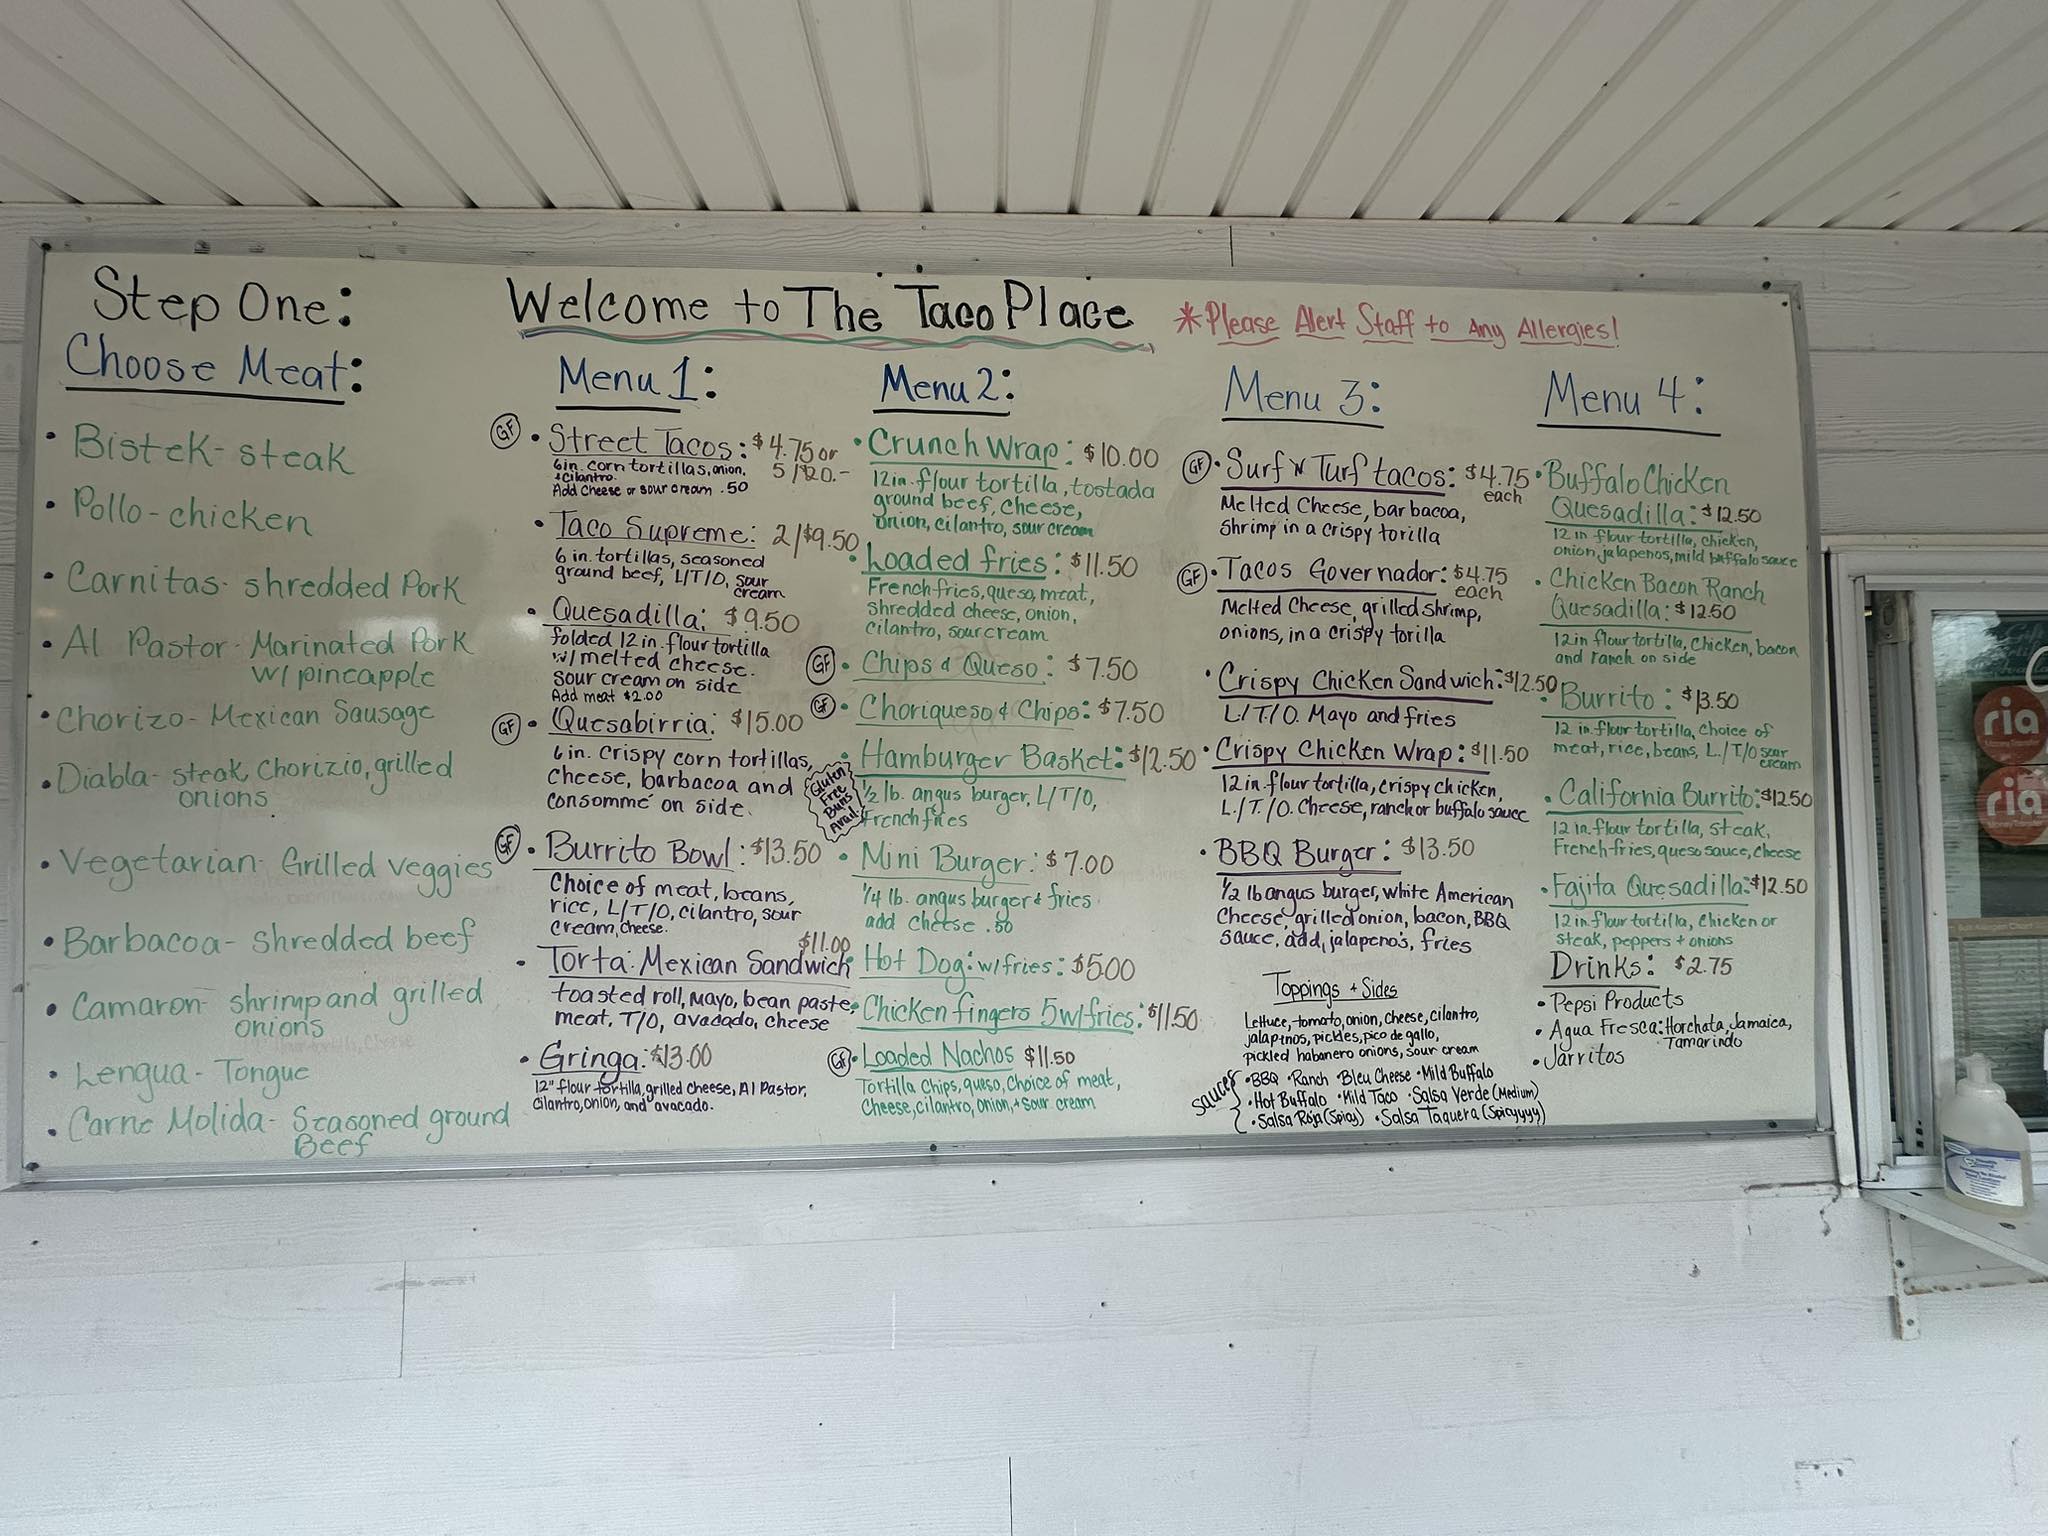 Step One:
Choose Meat:
• Bistek- steak
• Pollo- chicken
• Carnitas- shredded Pork
• Al Pastor- Marinated Pork
w/ pineapple
• Chorizo- Mexican Sausage
• Diabla- steak, Chorizio, grilled
onions
• Vegetarian- Grilled veggies
• Barbacoa- shredded beef
• Camaron- shrimp and grilled
onions
• Lengua- Tongue
• Carne Molida- Seasoned ground
Beef
Welcome to The Taco Place
*Please Alert Staff to Any Allergies!
Menu 1:
GF • Street Tacos: $4.75 or
5/$20.-
6in. corn tortillas, onion,
+cilantro.
Add Cheese or sour cream .50
• Taco Supreme: 2/$9.50
6 in. tortillas, seasoned
ground beef, L/T/O, sour
cream
• Quesadilla: $9.50
folded 12 in. flour tortilla
w/ melted cheese.
sour cream on side
Add meat $2.00
GF • Quesabirria: $15.00
6 in. crispy corn tortillas,
cheese, barbacoa and
consommé on side.
GF • Burrito Bowl: $13.50
Choice of meat, beans,
rice, L/T/O, cilantro, sour
cream, cheese.
• Torta: Mexican Sandwich $11.00
toasted roll, mayo, bean paste,
meat, T/O, avacado, cheese
• Gringa: $13.00
12" flour tortilla, grilled cheese, Al Pastor,
cilantro, onion, and avacado.
Menu 2:
• Crunch Wrap: $10.00
12in. flour tortilla, tostada
ground beef, cheese,
onion, cilantro, sour cream
• Loaded fries: $11.50
French fries, queso, meat,
shredded cheese, onion,
cilantro, sour cream
GF • Chips & Queso: $7.50
GF • Choriqueso & Chips: $7.50
• Hamburger Basket: $12.50
1/2 lb. angus burger, L/T/O,
& French fries
Gluten
Free
Buns
Avail.
• Mini Burger: $7.00
1/4 lb. angus burger & fries
add cheese .50
• Hot Dog: w/ fries: $5.00
• Chicken fingers 5 w/ fries: $11.50
GF • Loaded Nachos $11.50
Tortilla chips, queso, choice of meat,
cheese, cilantro, onion, + sour cream
Menu 3:
GF • Surf N Turf tacos: $4.75
each
Melted Cheese, barbacoa,
shrimp in a crispy torilla
GF • Tacos Governador: $4.75
each
Melted Cheese, grilled shrimp,
onions, in a crispy torilla
• Crispy Chicken Sandwich: $12.50
L/T/O. Mayo and fries
• Crispy Chicken Wrap: $11.50
12 in. flour tortilla, crispy chicken,
L./T./O. Cheese, ranch or buffalo sauce
• BBQ Burger: $13.50
1/2 lb angus burger, white American
Cheese, grilled onion, bacon, BBQ
sauce, add, jalapeno's, fries
Toppings + Sides
Lettuce, tomato, onion, cheese, cilantro,
jalapenos, pickles, pico de gallo,
pickled habanero onions, sour cream
Sauces
• BBQ • Ranch • Bleu Cheese • Mild Buffalo
• Hot Buffalo • Mild Taco • Salsa Verde (Medium)
• Salsa Roja (Spicy) • Salsa Taquera (Spicyyyy)
Menu 4:
• Buffalo Chicken
Quesadilla: $12.50
12 in flour tortilla, chicken,
onion, jalapenos, mild buffalo sauce
• Chicken Bacon Ranch
Quesadilla: $12.50
12 in flour tortilla, Chicken, bacon
and ranch on side
• Burrito: $13.50
12 in. flour tortilla, Choice of
meat, rice, beans, L./T/O sour
cream
• California Burrito: $12.50
12 in. flour tortilla, steak,
French-fries, queso sauce, cheese
• Fajita Quesadilla: $12.50
12 in flour tortilla, chicken or
steak, peppers + onions
Drinks: $2.75
• Pepsi Products
• Agua Fresca: Horchata, Jamaica,
Tamarindo
• Jarritos
ria
ria